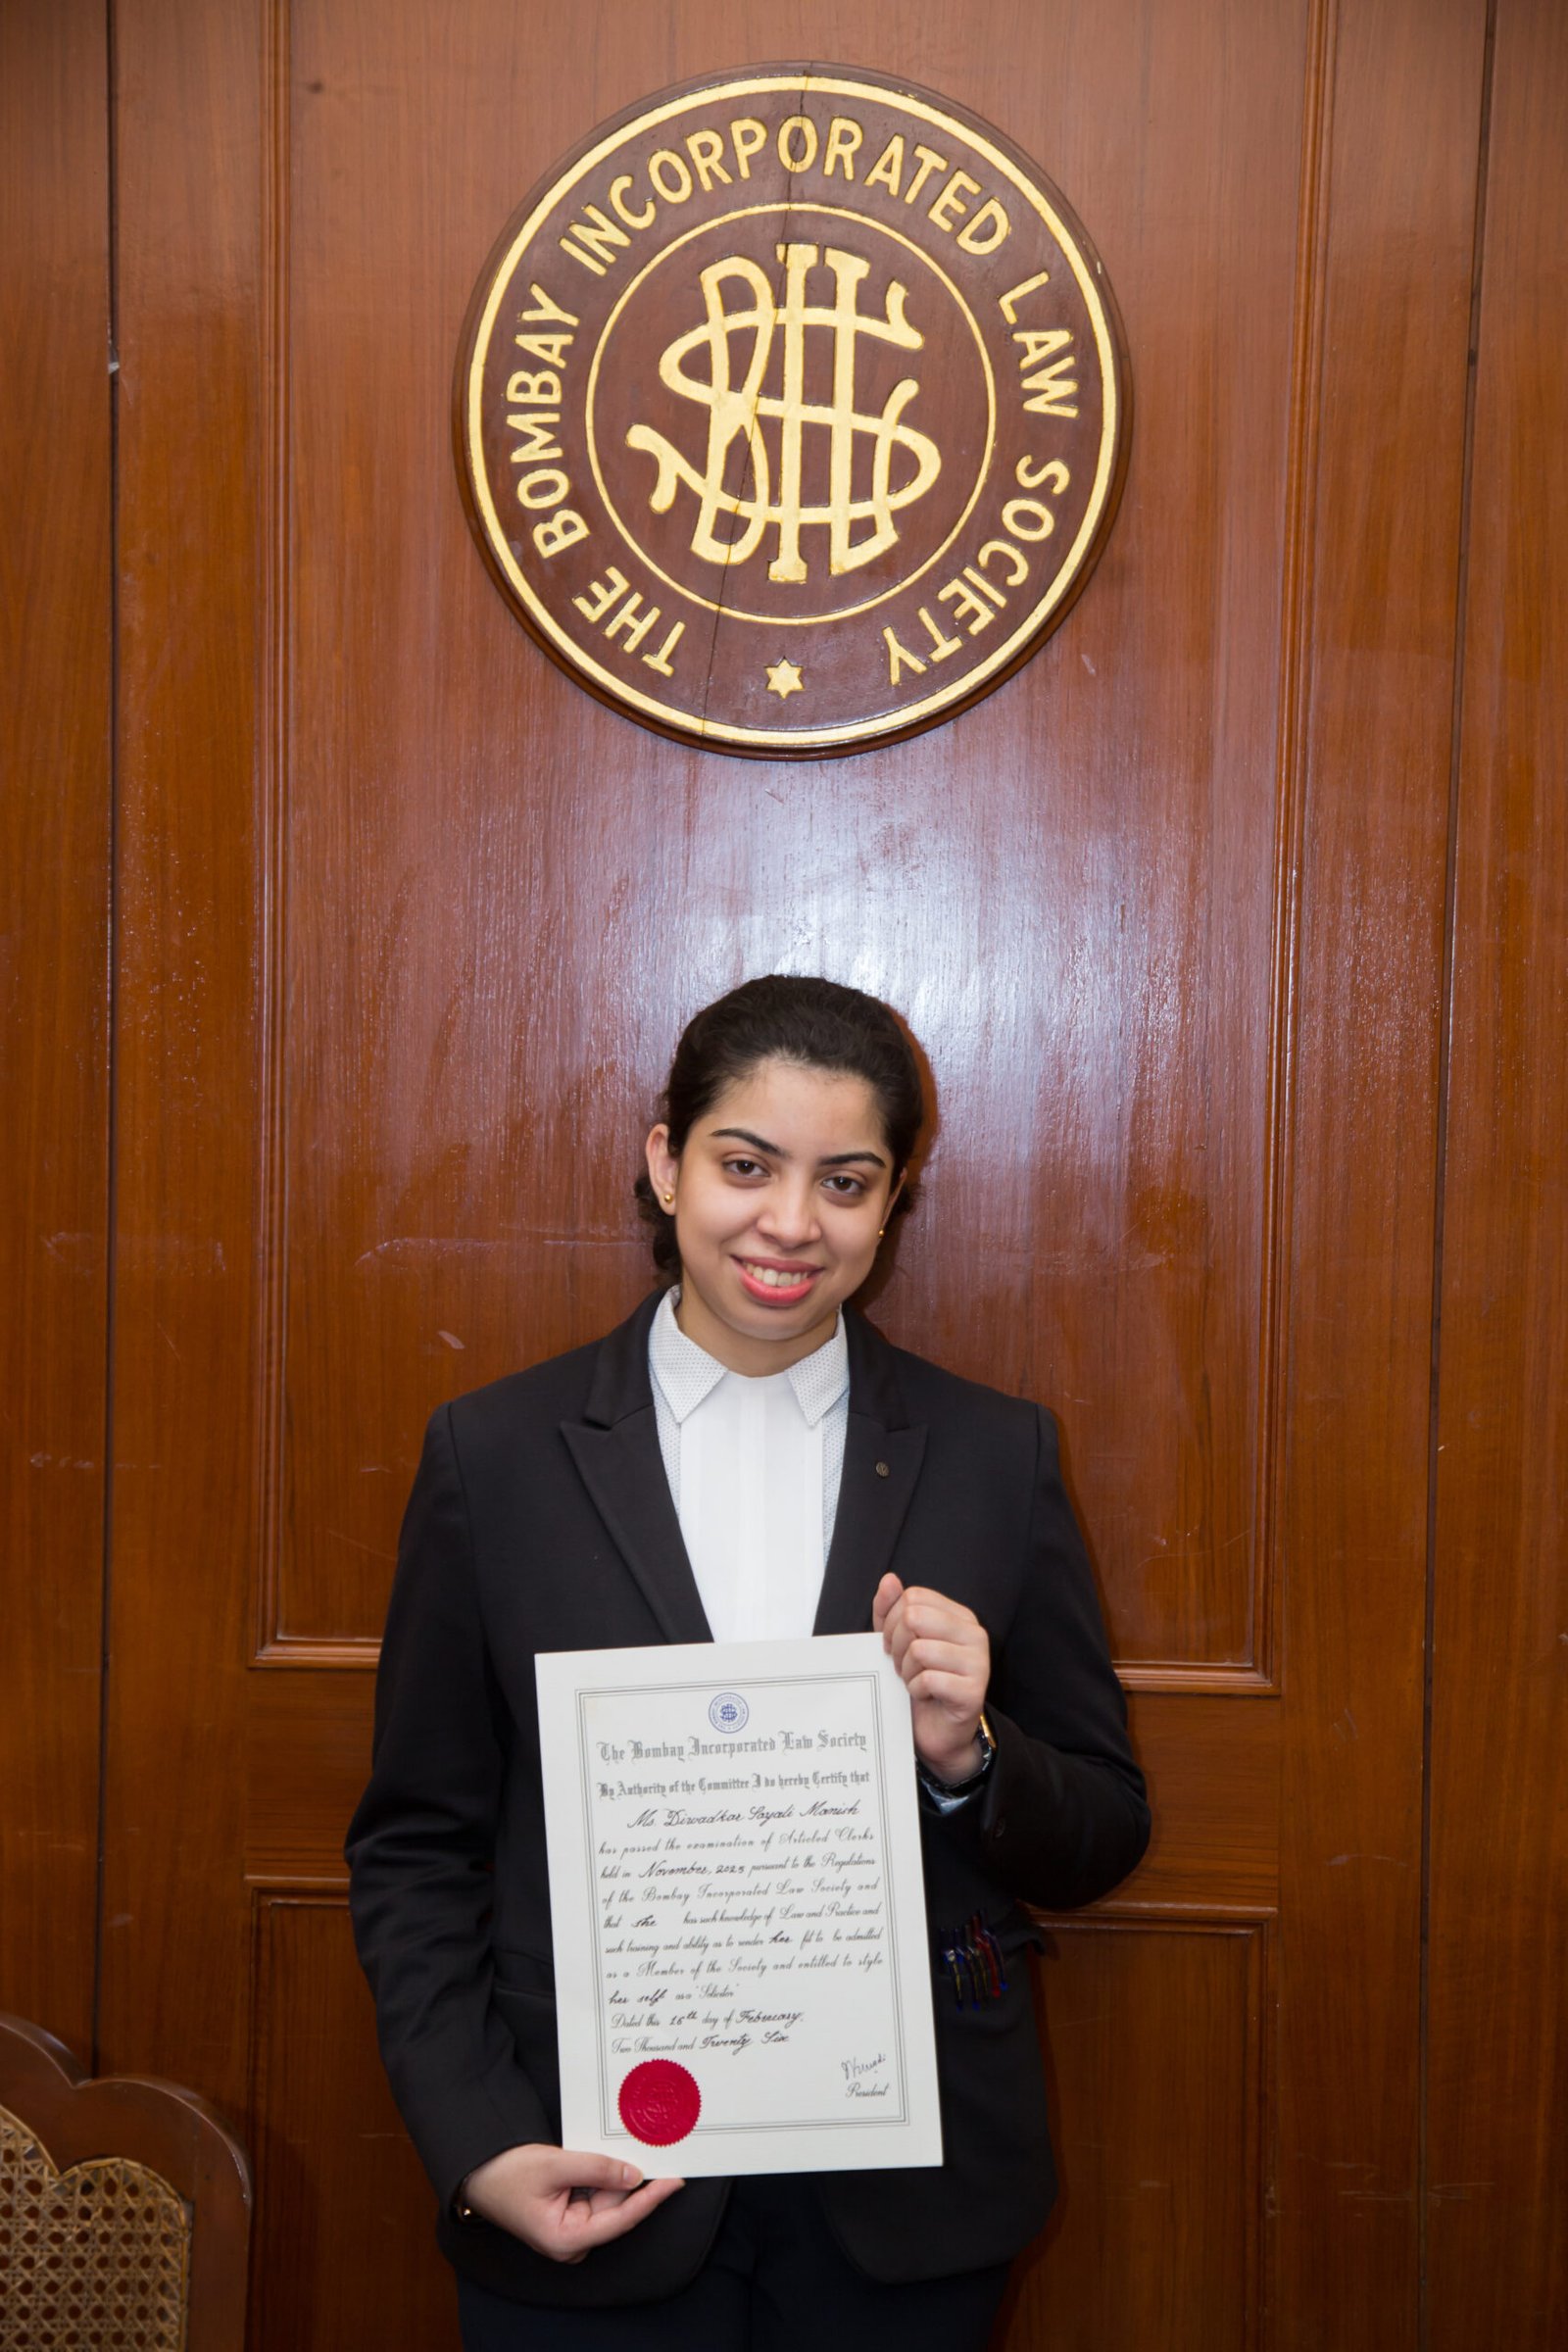 THE BOMBAY INCORPORATED LAW SOCIETY
The Bombay Incorporated Law Society
By Authority of the Committee I do hereby Certify that
Ms. Diwadkar Sayali Manish
has passed the examination of Articled Clerks
held in November, 2025 pursuant to the Regulations
of the Bombay Incorporated Law Society and
that she has such knowledge of Law and Practice and
such training and ability as to render her fit to be admitted
as a Member of the Society and entitled to style
her self as a "Solicitor"
Dated this 16th day of February,
Two Thousand and Twenty Six
President